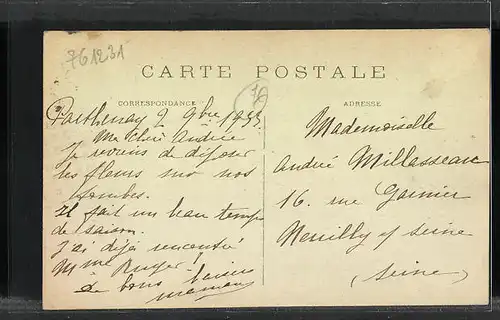 761231
CARTE POSTALE
CORRESPONDANCE
ADRESSE
Parthenay 2 9bre 1933
Ma chère Andrée
Je reviens de déposer
les fleurs sur nos
tombes.
Il fait un beau temps
de saison.
J'ai déjà rencontré
Mme Ruyer!
de bons baisers
maman
Mademoiselle
André Millasseau
16. rue Garnier
Neuilly s/ seine
(Seine)